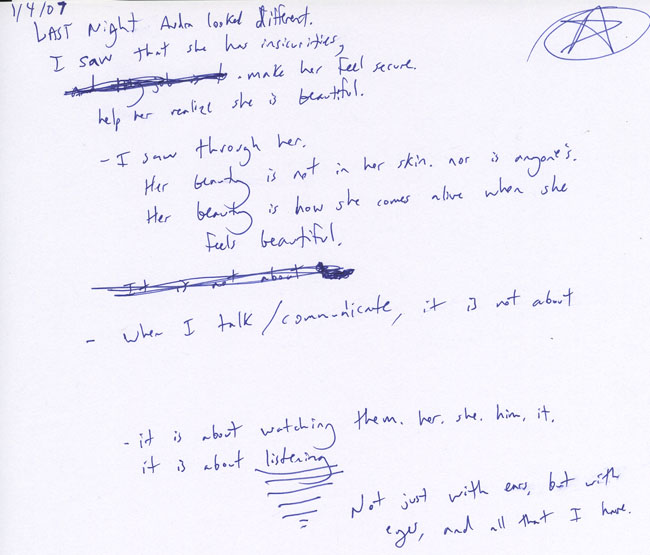 1/4/07
LAST Night Audra looked different.
I saw that she has insicurities,
. make her feel secure.
help her realize she is beautiful.
- I saw through her.
Her beauty is not in her skin. nor is anyone's.
Her beauty is how she comes alive when she
feels beautiful.
It is not about
- when I talk/communicate, it is not about
- it is about watching them. her. she. him, it.
it is about listening
Not just with ears, but with
eyes, and all that I have.